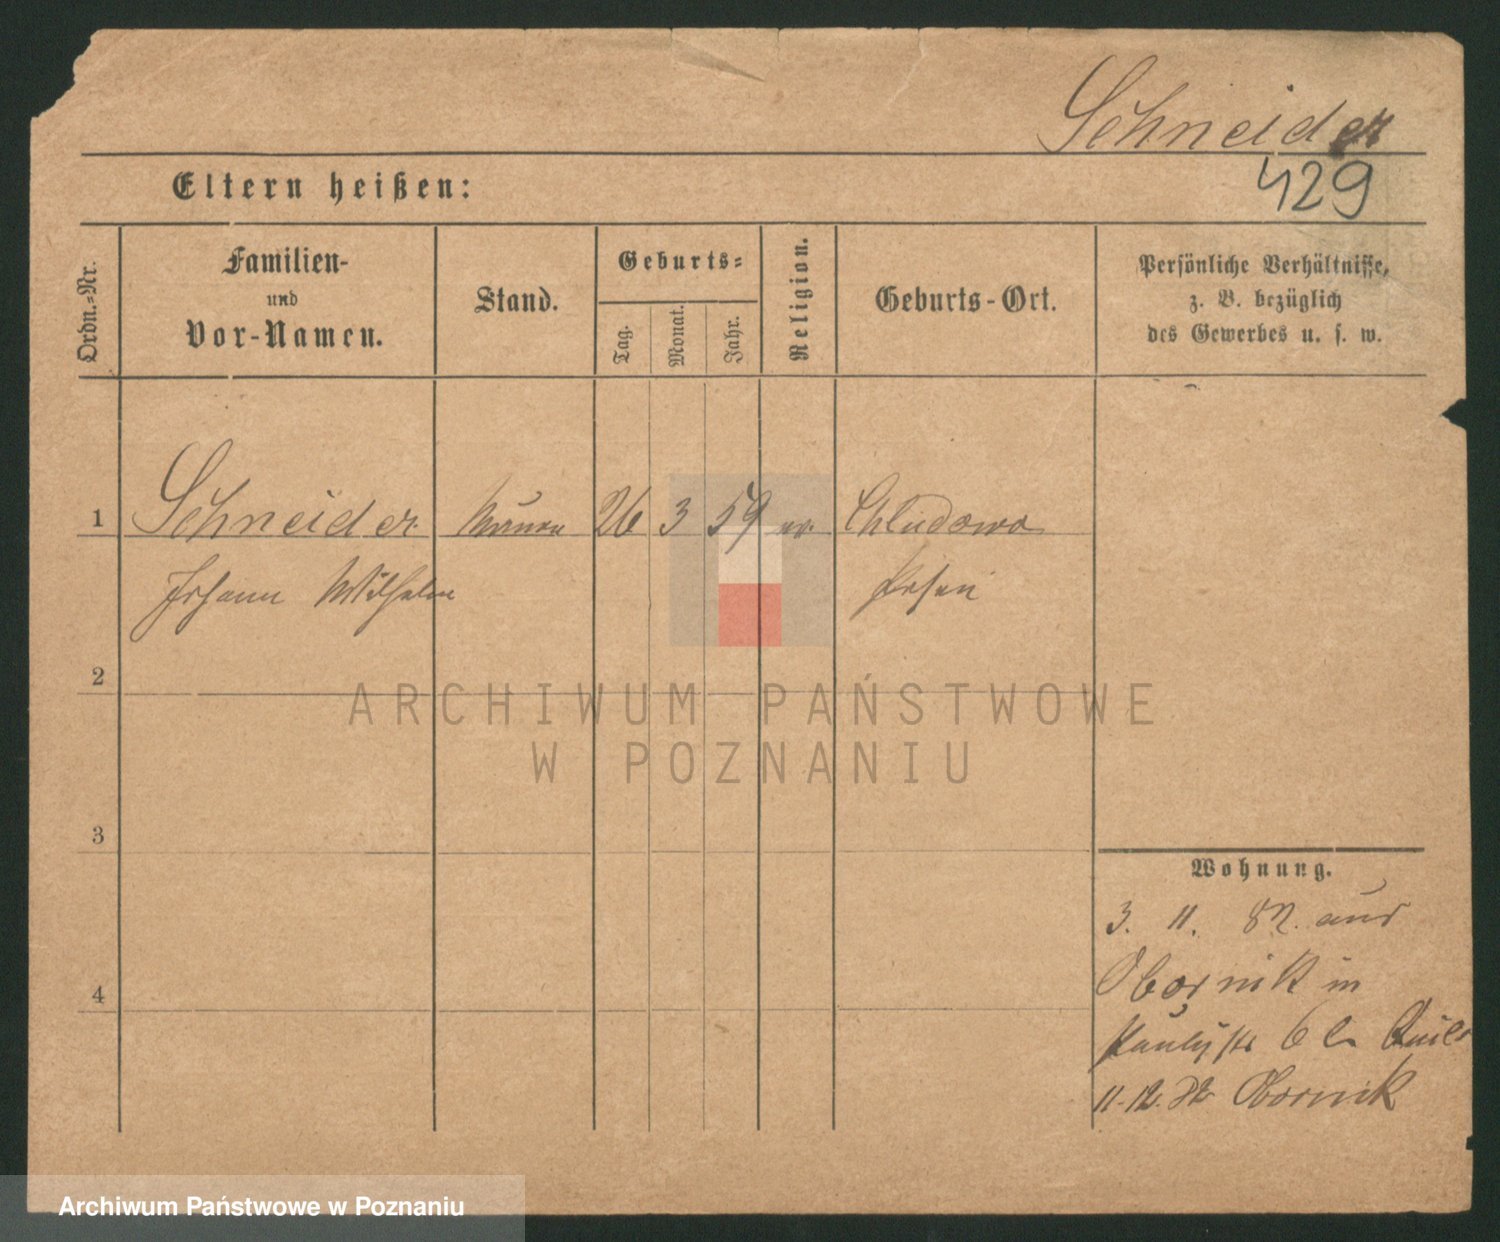 Schneider
429
Eltern heißen:
Ordn.-Nr.
Familien-
und
Vor-Namen.
Stand.
Geburts-
Tag.
Monat.
Jahr.
Religion.
Geburts-Ort.
Persönliche Verhältnisse,
z. B. bezüglich
des Gewerbes u. s. w.
1 Schneider Maurer 26 3 59 ev. Chludowo
Johann Wilhelm Posen
2
3
4
Wohnung.
3. 11. 82. aus
Obornik in
6
11. 12. 82 Obornik
ARCHIWUM PAŃSTWOWE
W POZNANIU
Archiwum Państwowe w Poznaniu